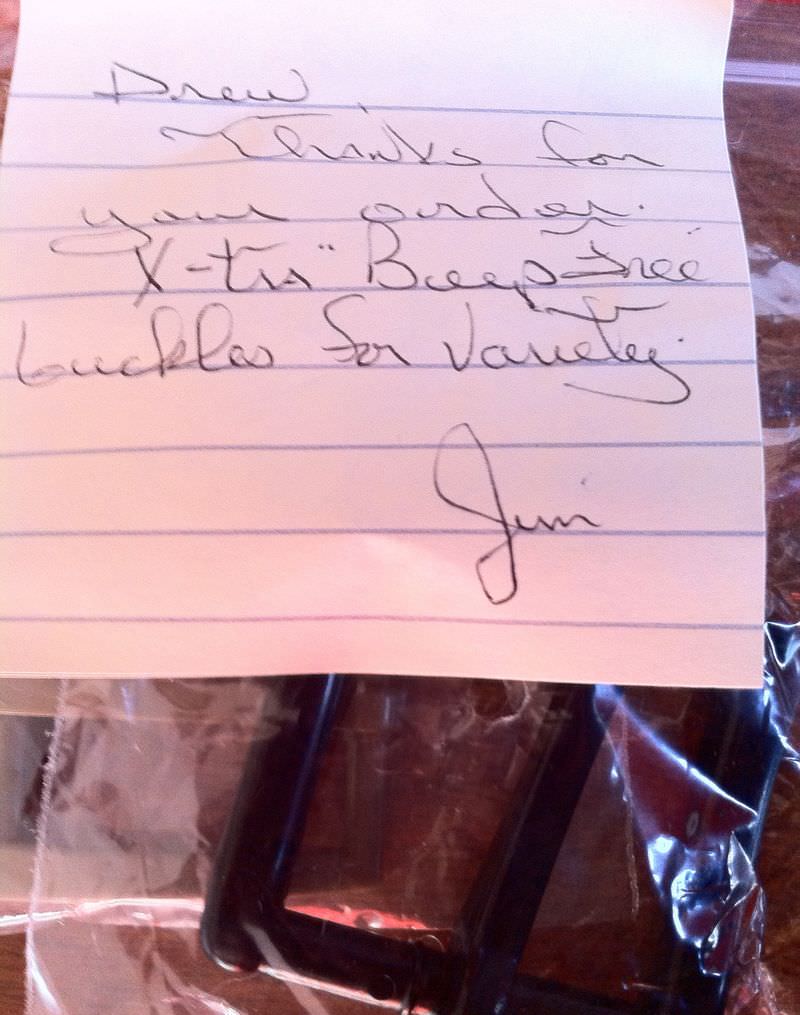 Drew,
Thinks for
your order.
X-tra "Beep-free"
buckles for variety.
Jim